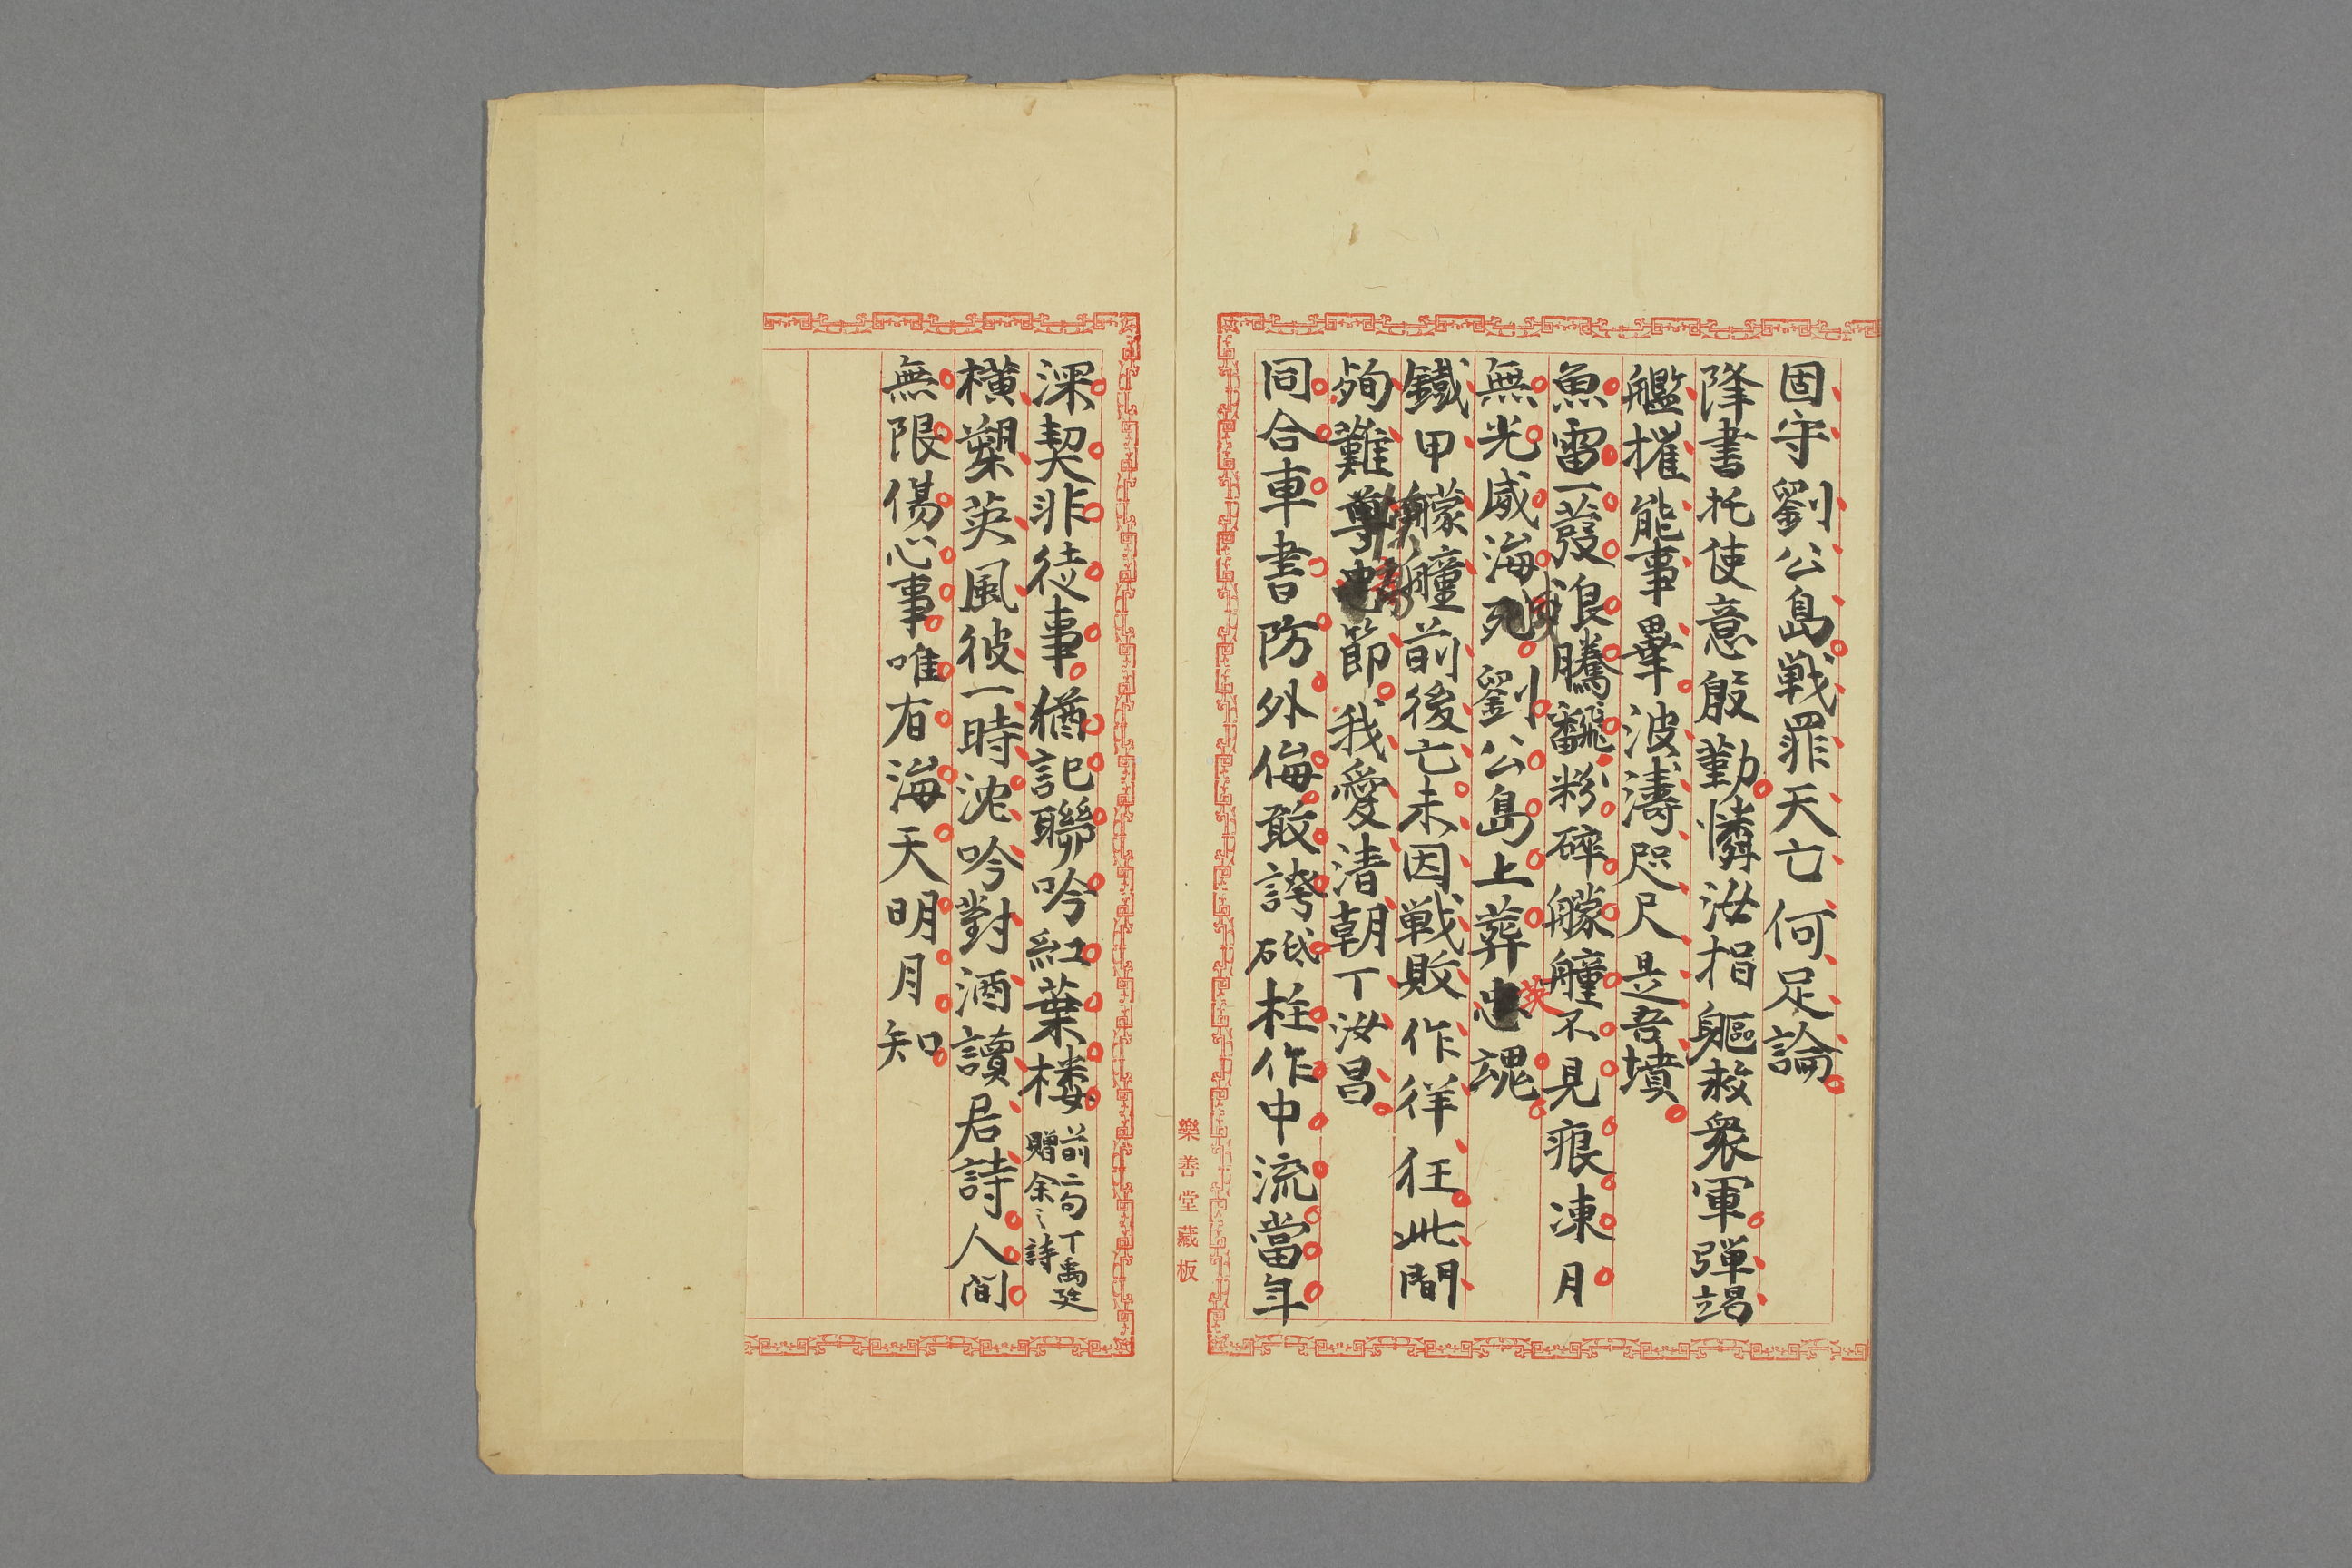 固守劉公島戦罪天亡何足論
降書托使意殷勤憐汝捐軀救衆軍弾竭
艦摧能事畢波濤咫尺是吾墳
魚雷一發浪騰飜粉碎艨艟不見痕凍月
無光威海死滅劉公島上葬忠英魂
鐡甲艨艟前後亡未因戦敗作徉狂此間
殉難尊忠節我愛清朝丁汝昌
同合車書防外侮敢誇砥柱作中流當年
深契非徒事猶記聯吟紅葉楼前二句丁禹廷贈余之詩
横槊英風彼一時沈吟對酒讀君詩人間
無限傷心事唯有海天明月知
樂善堂蔵板